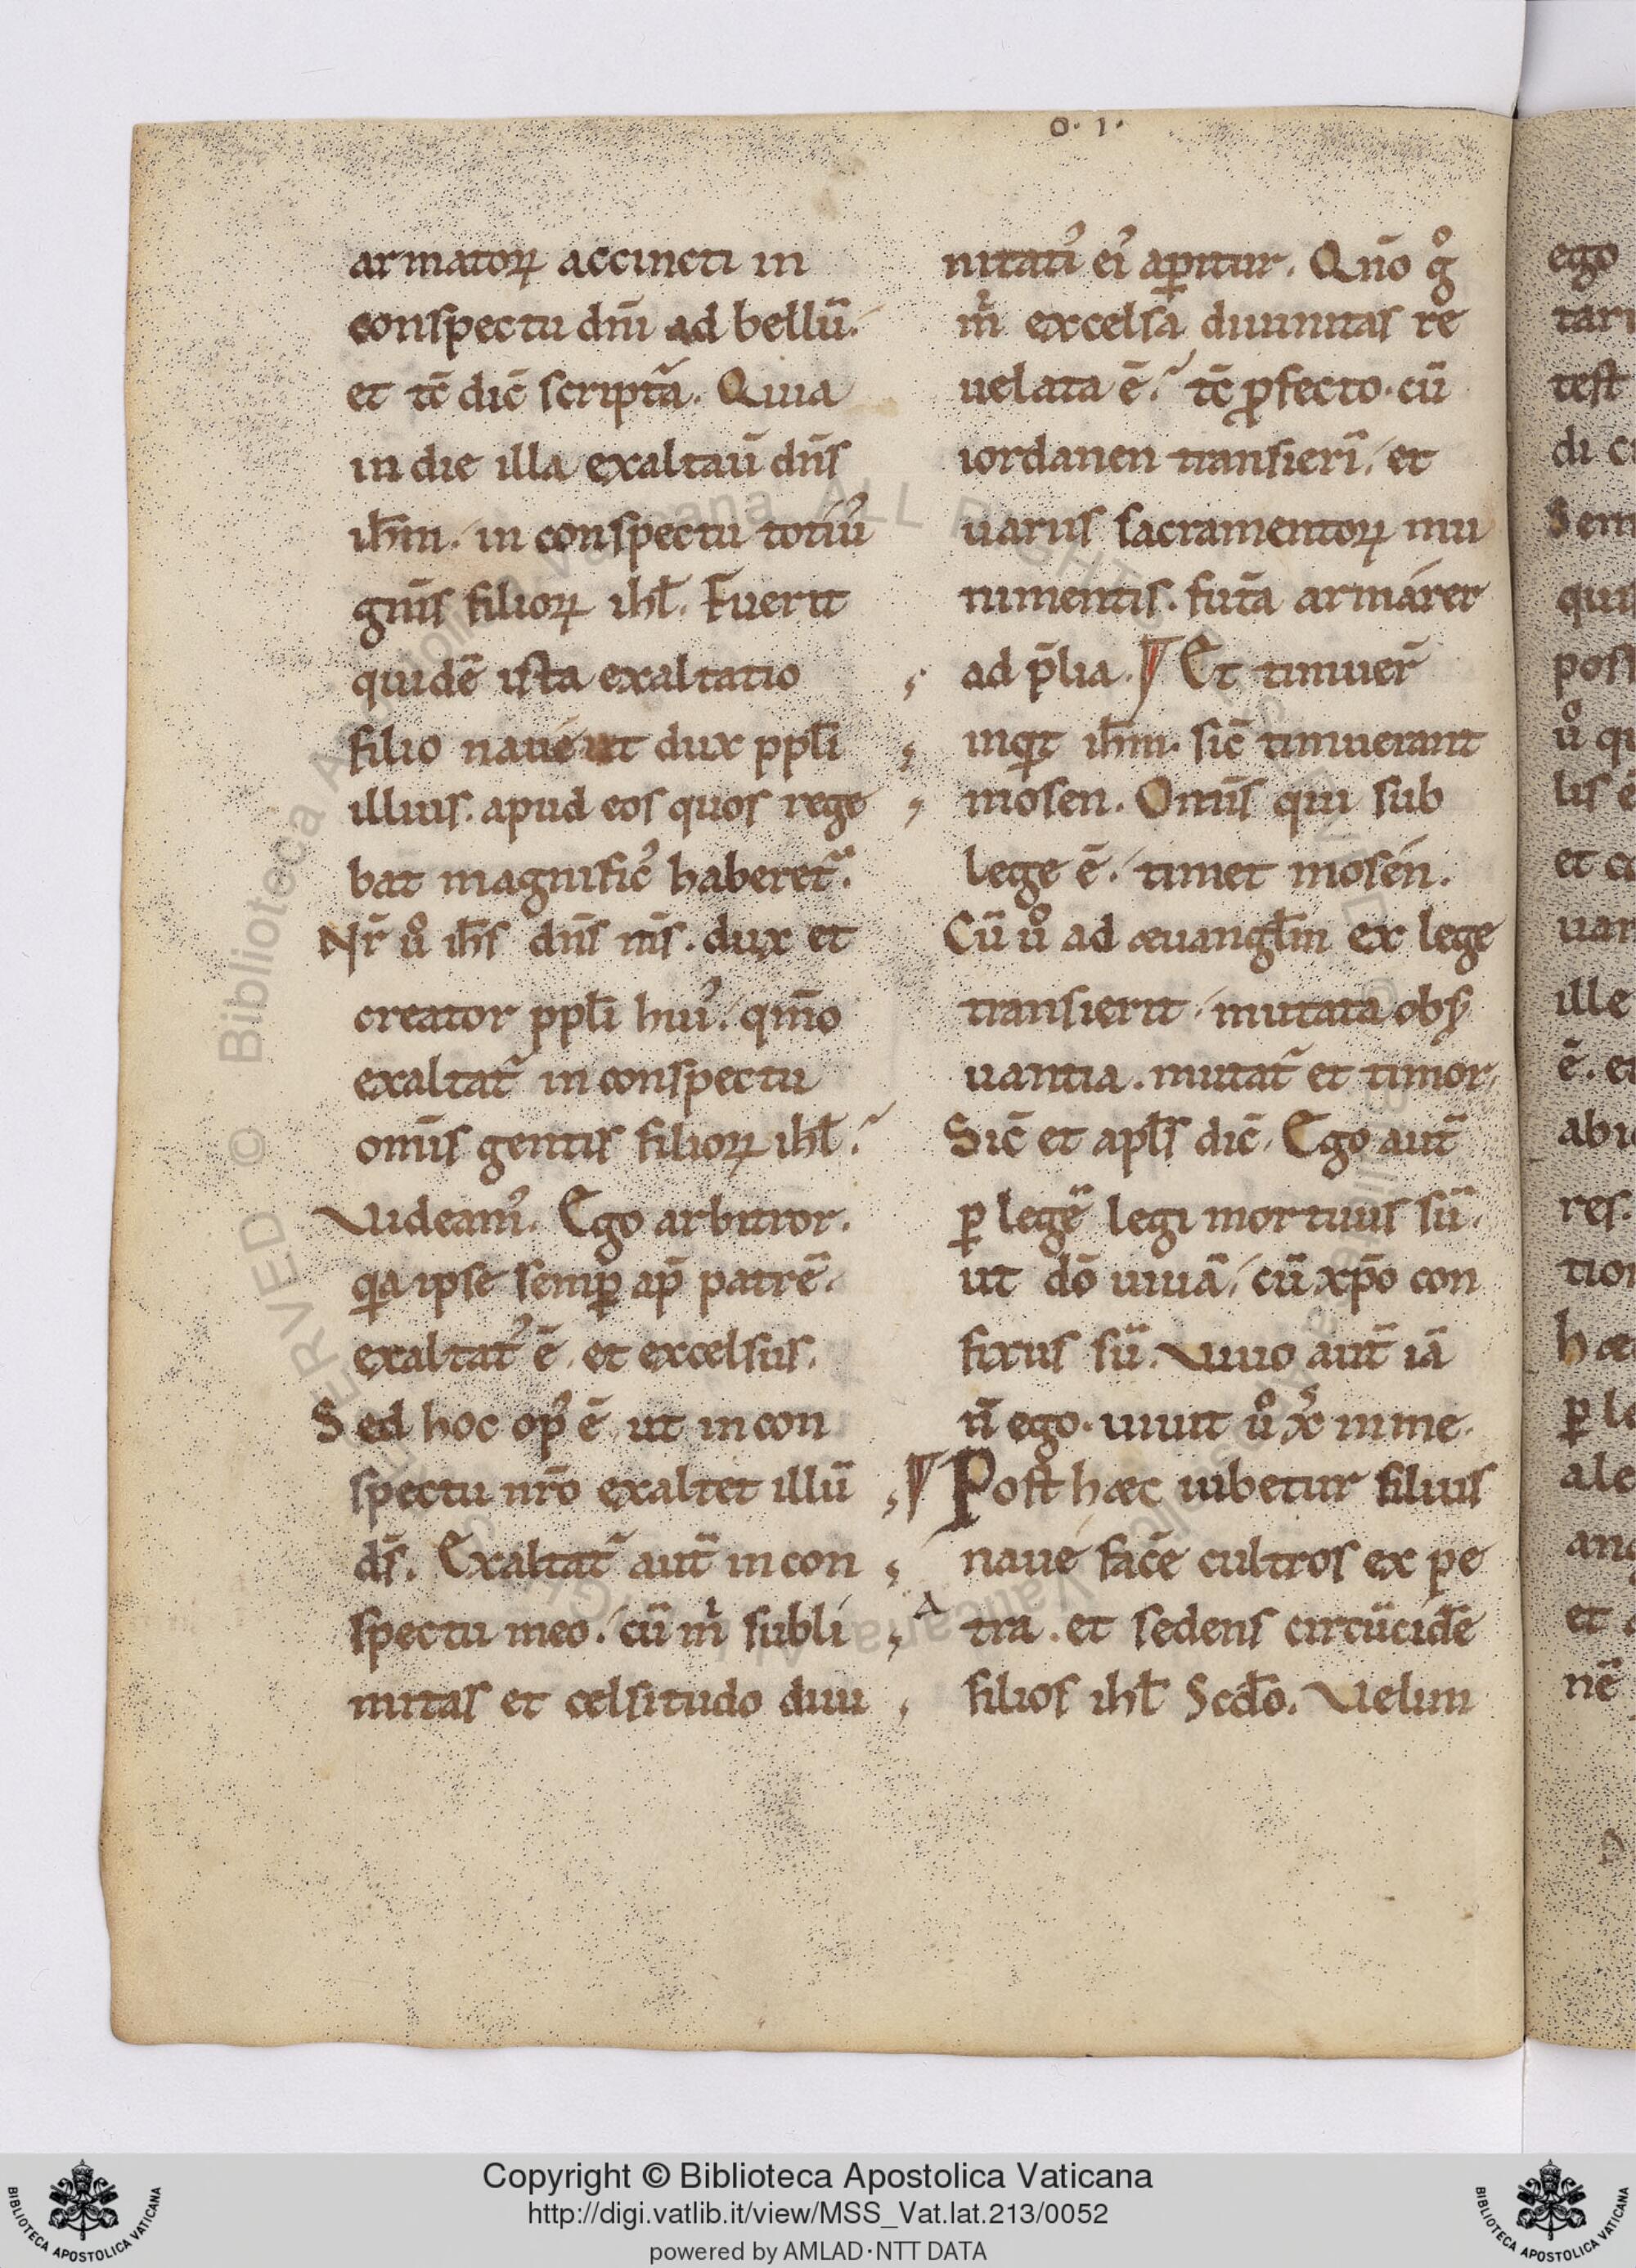 o. i.
armatoꝝ accincti in
conspectu dn̄i ad bellū.
et tc̄ dic̄ scriptā. Quia
in die illa exaltau̅ dn̄s
ih̄m. in conspectu totiuꝰ
gn̄is filioꝝ ihl̄. Fuerit
quidē ista exaltatio
filio naue ut dux ppl̄i
illius. apud eos quos rege
bat magnificꝰ haberet᷑.
Nr̄ uͦ ih̄s dn̄s n̄is. dux et
creator ppl̄i huiꝰ. qm̄o
exaltat᷑ in conspectu
om̄is gentis filioꝝ ihl̄.
Videamꝰ. Ego arbitror.
qa ipse semꝑ ap̄ patrē.
exaltatꝰ ē. et excelsus.
Sed hoc opꝰ ē ut in con
spectu nr̄o exaltet illū
ds̄. Exaltat᷑ aut̄ in con
spectu meo. cū m̊ subli
mitas et celsitudo diui
nitatꝭ eiꝰ aꝑitur. Qn̄o gͦ
m̊ excelsa diuinitas re
uelata ē. tc̄ ꝓfecto. cū
iordanen transierī. et
uariis sacramentoꝝ mu
nimentis. futā armarer
ad p̄lia. ¶ Et timuer̄
inqͥt ih̄m. sic̄ timuerant
mosen. Om̄is qui sub
lege ē. timet mosen.
Cū uͦ ad æuangl̄m ex lege
transierit. mutata obẜ
uantia. mutat᷑ et timor.
Sic̄ et apl̄s dic̄. Ego aut̄
ꝑ legē legi mortuus sū.
ut dō uiuā. cū xp̄o con
fixus sū. Viuo aut̄ iā
n̄ ego. uiuit uͦ xp̄c in me.
¶ Post hæc iubetur filius
naue facē cultros ex pe
tra. et sedens circūcidē
filios ihl̄ Scd̄o. Velim
ego
test
Copyright © Biblioteca Apostolica Vaticana
http://digi.vatlib.it/view/MSS_Vat.lat.213/0052
powered by AMLAD·NTT DATA
BIBLIOTECA APOSTOLICA VATICANA
BIBLIOTECA APOSTOLICA VATICANA